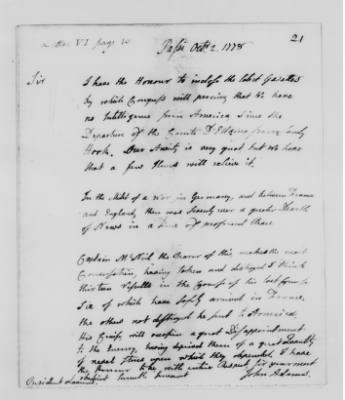 Passi Octr. 2. 1778 21
Sir
I have the Honour to inclose the latest Gazettes
by which Congress will perceive that We have
no Intelligence from America Since the
Departure of the Comte D'Estaing from Sandy
Hook. Our Anxiety is very great but We hope
that a few Hours will relieve it.
In the Midst of a War in Germany, and between France
and England, there was Scarcely ever a greater Dearth
of News in a Time of profound Peace
Captain McNeil the Bearer of this, makes the most
Conversation, having taken and destroyed I think
thirteen Vessells in the Course of his last
Six of which have Safely arrived in France,
the others not destroyed he sent to America,
his Cruise will occasion a great Disappointment
to the Enemy, having deprived them of a great Quantity
of naval Stores upon which they depended. I have
the Honour to be with entire Respect Sir your most
obedient humble Servant
John Adams.
President Laurens.